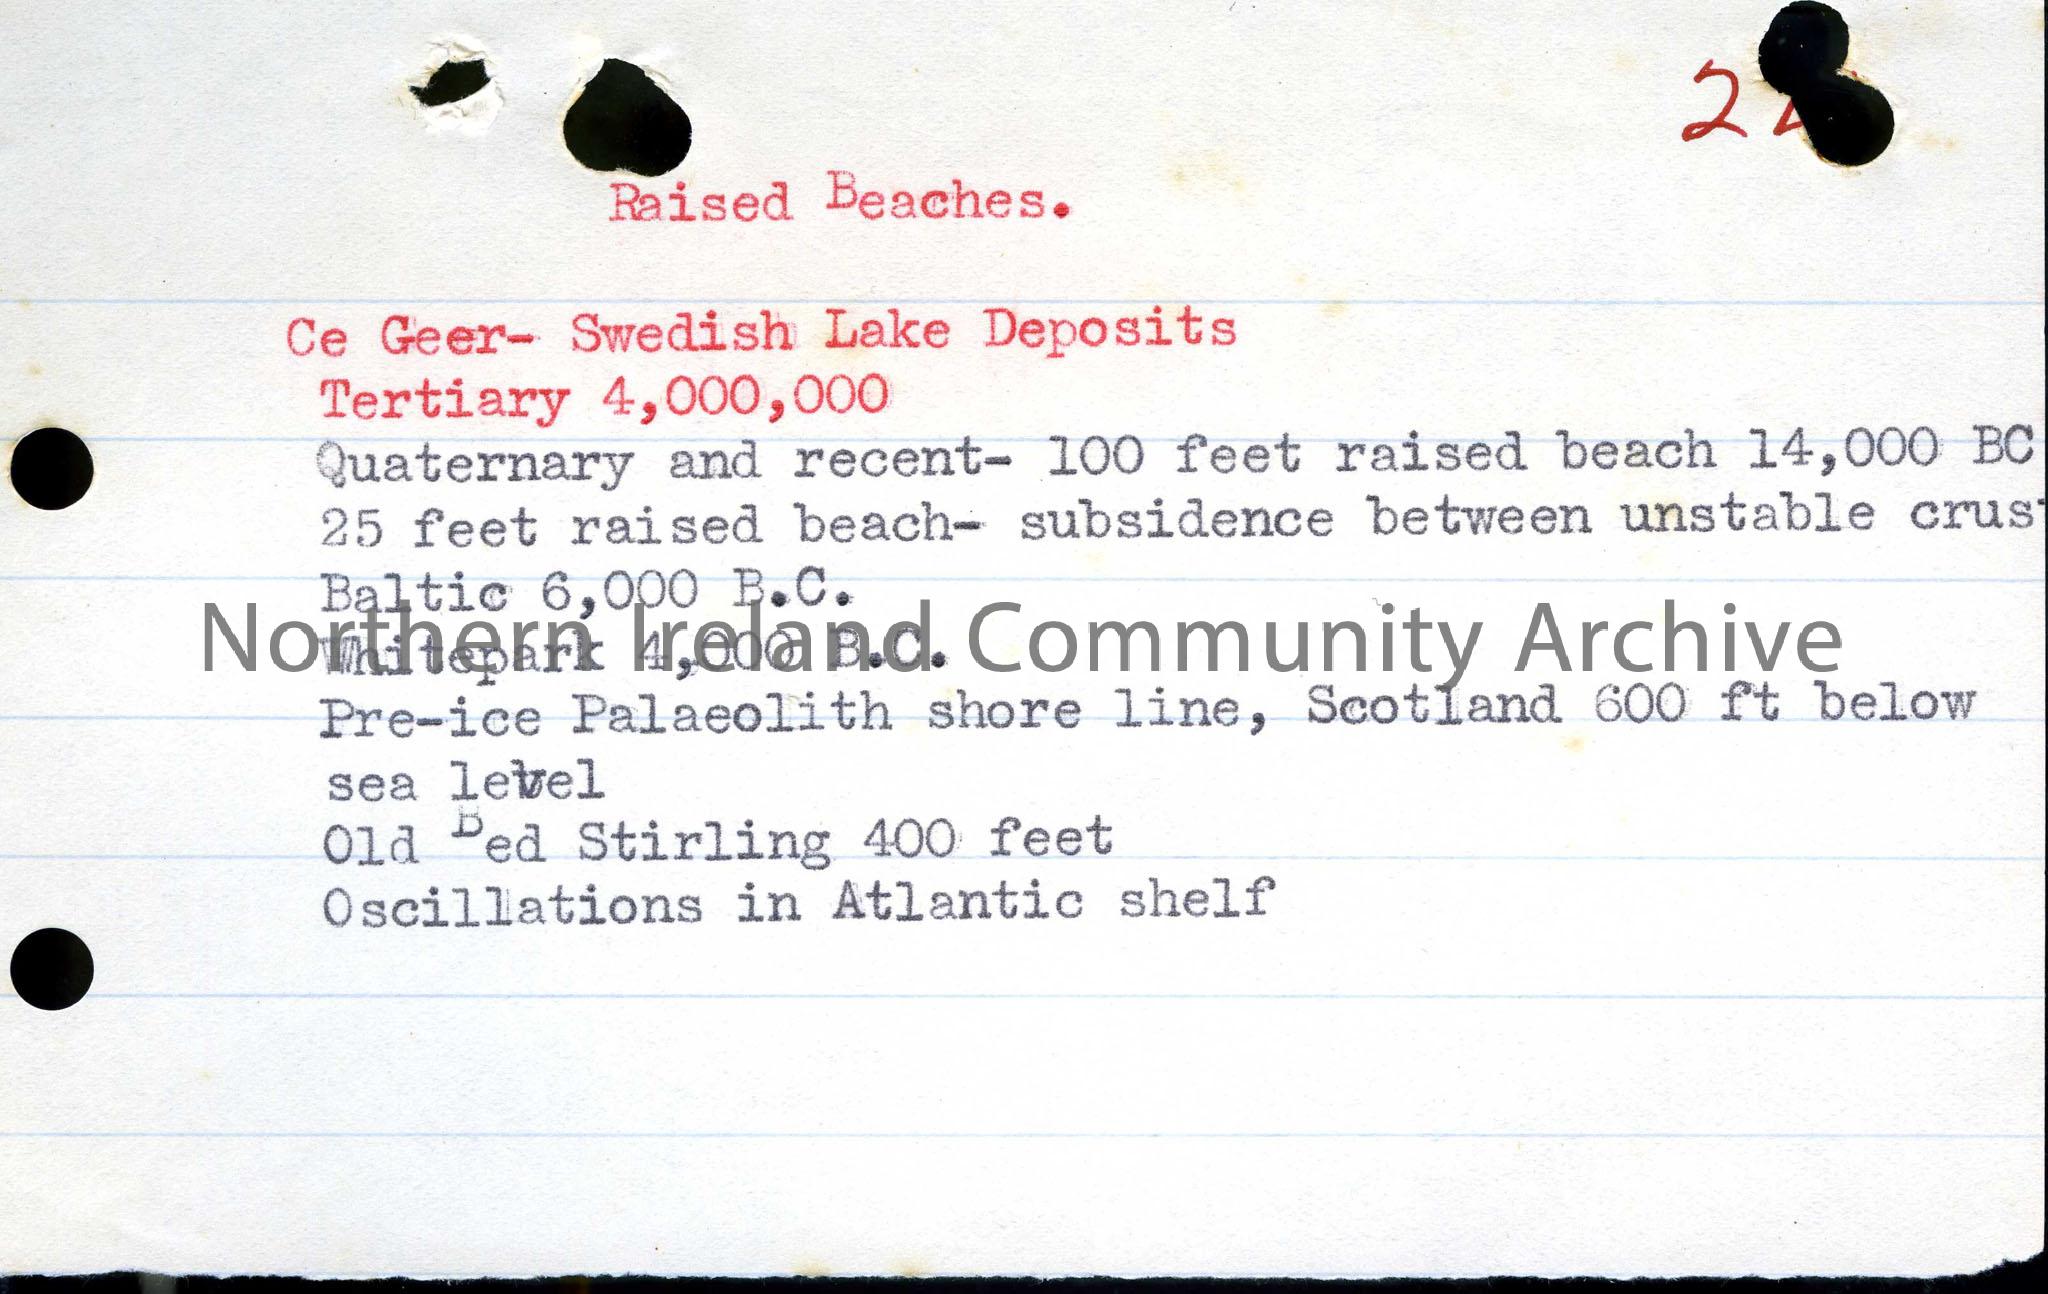 2
Raised Beaches.
Ce Geer- Swedish Lake Deposits
Tertiary 4,000,000
Quaternary and recent- 100 feet raised beach 14,000 BC
25 feet raised beach- subsidence between unstable crus
Baltic 6,000 B.C.
Northern Ireland Community Archive
Whitepark 4,000 B.C.
Pre-ice Palaeolith shore line, Scotland 600 ft below
sea level
Old Bed Stirling 400 feet
Oscillations in Atlantic shelf